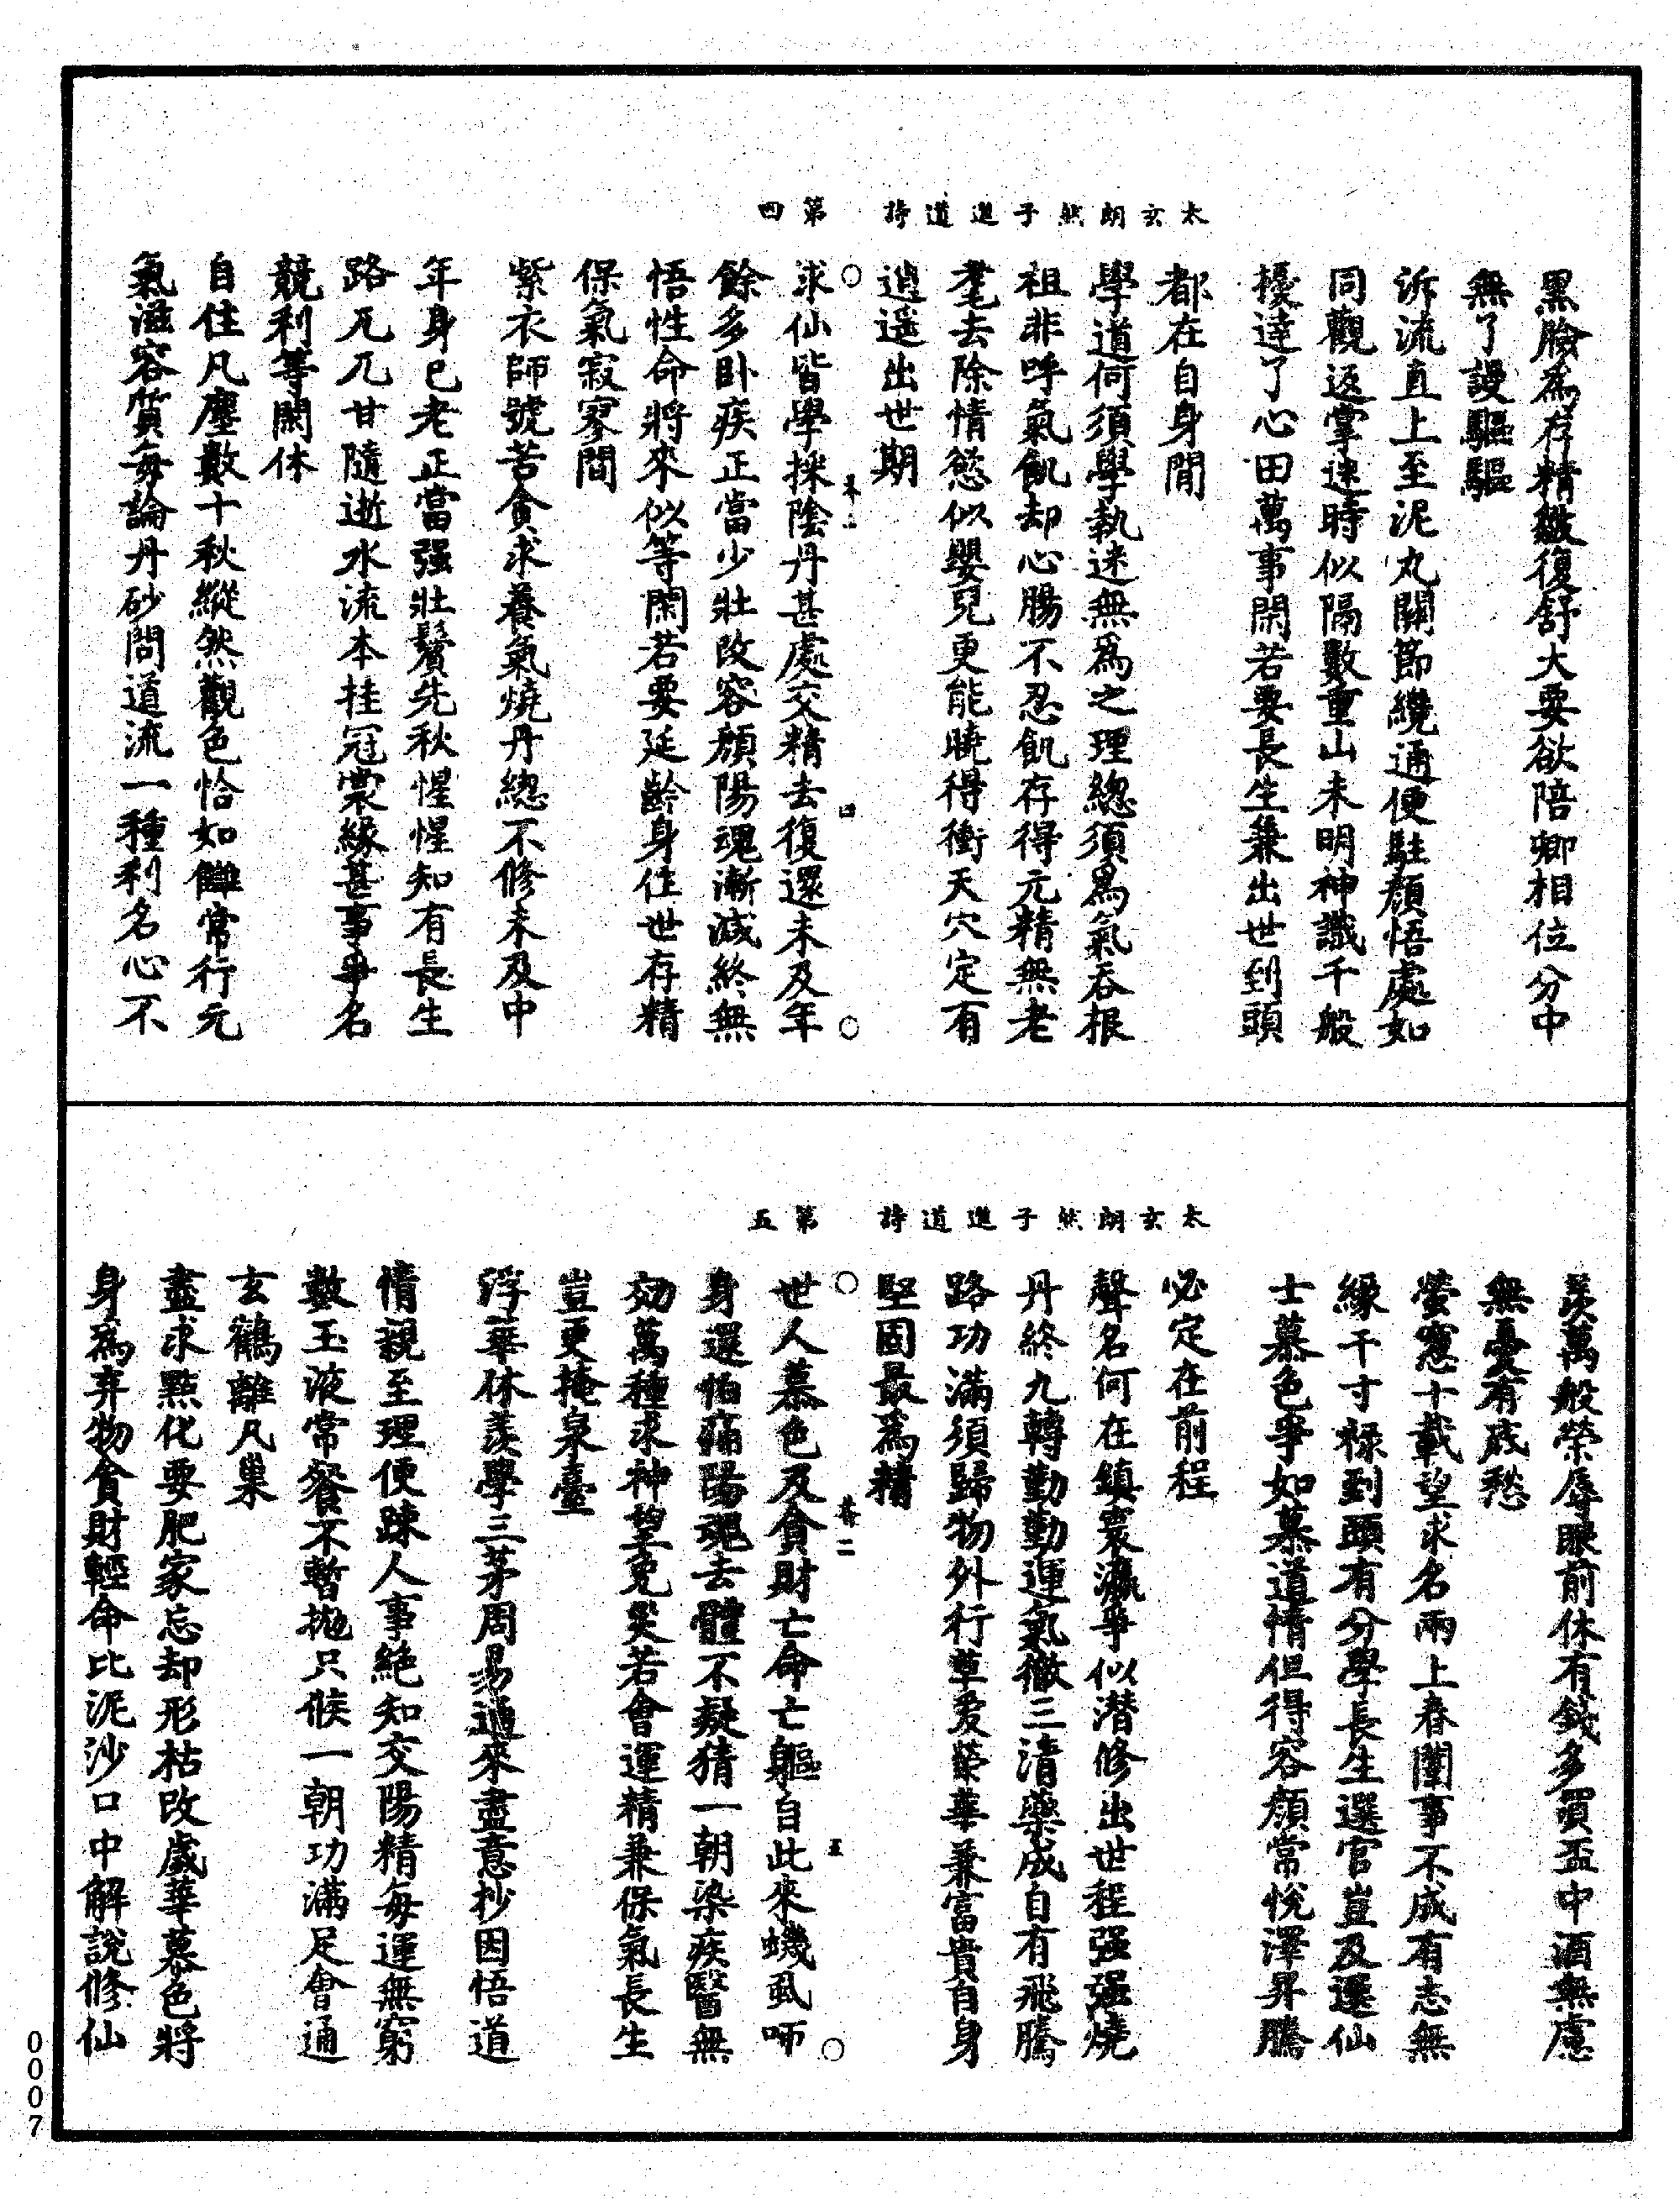 太玄朗然子進道詩　第四
黑臉爲存精皺復舒大要欲陪卿相位分中
無了謾驅驅
泝流直上至泥丸關節纔通便駐顏悟處如
同觀返掌迷時似隔數重山未明神識千般
擾達了心田萬事閑若要長生兼出世到頭
都在自身間
學道何須學執迷無爲之理總須爲氣吞根
祖非呼氣飢却心腸不忍飢存得元精無老
耄去除情慾似嬰兒更能曉得衝天穴定有
逍遥出世期
求仙皆學採陰丹甚處交精去復還未及年
餘多卧疾正當少壯改容顏陽魂漸減終無
悟性命將來似等閑若要延齡身住世存精
保氣寂寥間
紫衣師號苦貪求養氣燒丹總不修未及中
年身已老正當强壯鬢先秋惺惺知有長生
路兀兀甘隨逝水流本挂冠裳緣甚事爭名
競利等閑休
自住凡塵數十秋縱然觀色恰如讎常行元
氣滋容質每論丹砂問道流一種利名心不
太玄朗然子進道詩　第五
羨萬般榮辱眼前休有錢多買盃中酒無慮
無憂有底愁
螢窻十載望求名兩上春闈事不成有志無
緣干寸祿到頭有分學長生選官豈及選仙
士慕色爭如慕道情但得容顏常悅澤昇騰
必定在前程
聲名何在鎮寰瀛爭似潛修出世程强强燒
丹終九轉勤勤運氣徹三清藥成自有飛騰
路功滿須歸物外行草爱榮華兼富貴自身
堅固最爲精
世人慕色及貪財亡命亡軀自此來蟣虱咂
身還怕痛陽魂去體不疑猜一朝染疾醫無
効萬種求神望免災若會運精兼保氣長生
豈更掩泉臺
浮華休羨學三茅周易通來盡意抄因悟道
情親至理便踈人事絶知交陽精每運無窮
數玉液常飡不暫抛只候一朝功滿足會通
玄鶴離凡巢
盡求點化要肥家忘却形枯改歲華慕色將
身爲弃物貪財輕命比泥沙口中解說修仙
0007